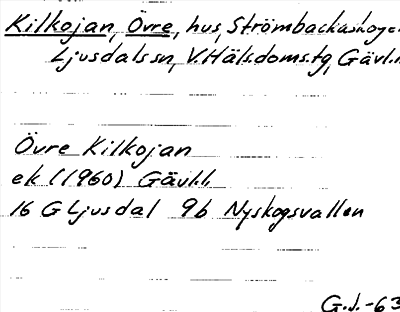 Kilkojan, Övre, hus, Strömbackaskogen
Ljusdals sn, V. Häls. doms. tg, Gävl. l.
Övre Kilkojan
ek (1960) Gävl. l.
16 G Ljusdal 9b Nyskogsvallen
G.J.-63